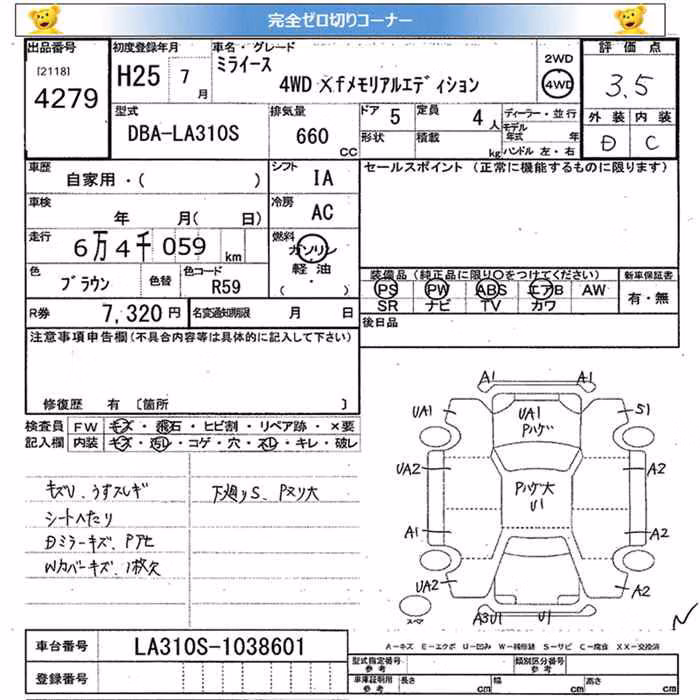 完全ゼロ切りコーナー
出品番号 初度登録年月 車名・グレード 2WD 評価点
[2118] H25 7 月 ミライース 4WD
4279 4WD Xfメモリアルエディション 3.5
型式 排気量 ドア 5 定員 4人 ディーラー・並行 外装 内装
DBA-LA310S 660 CC 形状 積載 kg モデル年式 年 D C
ハンドル 左・右
車歴 自家用・( ) シフト IA セールスポイント (正常に機能するものに限ります)
車検 年 月( 日) 冷房 AC
走行 6万4千059 km 燃料 ガソリン
軽油
( ・ )
色 ブラウン 色替 色コード R59 装備品(純正品に限り○をつけてください) 新車保証書
PS PW ABS エアB AW 有・無
SR ナビ TV カワ
R券 7,320円 名変通知期限 月 日 後日品
注意事項申告欄(不具合内容等は具体的に記入して下さい)
修復歴 有 [箇所 ]
検査員 FW キズ・飛石・ヒビ割・リペア跡・×要
記入欄 内装 キズ・汚レ・コゲ・穴・スレ・キレ・破レ
キズU、うすスレキズ 下廻りS、Pヌリ大
シートへたり
DミラーキズP
Wカバーキズ、1枚欠
A1 A1
UA1 UA1 S1
Pハゲ
UA2 A2
Pハゲ大
U1
A1 A2
UA2 A2
スペア A3U1 U1
A−キズ E−エクボ U−凹み W−補修跡 S−サビ C−腐食 XX−交換済
車台番号 LA310S-1038601
登録番号 型式指定番号 参考 類別区分番号 参考
車庫証明用 参考 長さ cm 幅 cm 高さ cm